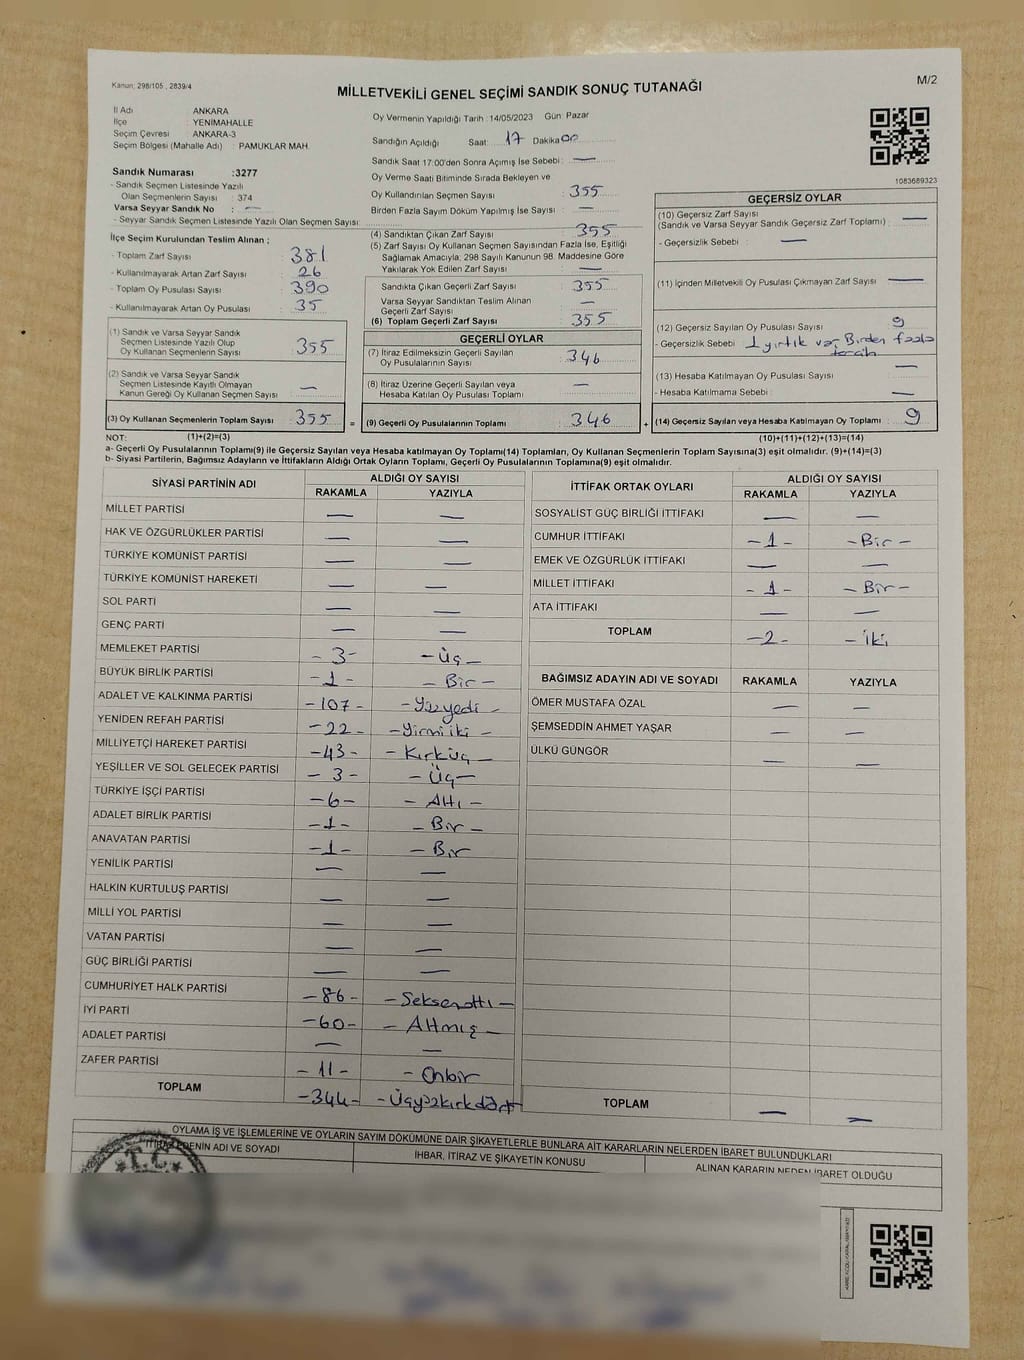 Kanun: 298/105 , 2839/4
MİLLETVEKİLİ GENEL SEÇİMİ SANDIK SONUÇ TUTANAĞI
M/2
İl Adı : ANKARA
İlçe : YENİMAHALLE
Seçim Çevresi : ANKARA-3
Seçim Bölgesi (Mahalle Adı) : PAMUKLAR MAH.
Sandık Numarası :3277
- Sandık Seçmen Listesinde Yazılı
Olan Seçmenlerin Sayısı : 374
Varsa Seyyar Sandık No : —
- Seyyar Sandık Seçmen Listesinde Yazılı Olan Seçmen Sayısı:
İlçe Seçim Kurulundan Teslim Alınan ;
- Toplam Zarf Sayısı : 381
- Kullanılmayarak Artan Zarf Sayısı : 26
- Toplam Oy Pusulası Sayısı : 390
- Kullanılmayarak Artan Oy Pusulası : 35
(1) Sandık ve Varsa Seyyar Sandık
Seçmen Listesinde Yazılı Olup
Oy Kullanan Seçmenlerin Sayısı : 355
(2) Sandık ve Varsa Seyyar Sandık
Seçmen Listesinde Kayıtlı Olmayan
Kanun Gereği Oy Kullanan Seçmen Sayısı : —
(3) Oy Kullanan Seçmenlerin Toplam Sayısı : 355
Oy Vermenin Yapıldığı Tarih : 14/05/2023 Gün: Pazar
Sandığın Açıldığı Saat: 17 Dakika 00
Sandık Saat 17:00'den Sonra Açımış İse Sebebi : —
Oy Verme Saati Bitiminde Sırada Bekleyen ve
Oy Kullandırılan Seçmen Sayısı : 355
Birden Fazla Sayım Döküm Yapılmış İse Sayısı : —
(4) Sandıktan Çıkan Zarf Sayısı : 355
(5) Zarf Sayısı Oy Kullanan Seçmen Sayısından Fazla İse, Eşitliği
Sağlamak Amacıyla; 298 Sayılı Kanunun 98. Maddesine Göre
Yakılarak Yok Edilen Zarf Sayısı : —
Sandıkta Çıkan Geçerli Zarf Sayısı : 355
Varsa Seyyar Sandıktan Teslim Alınan
Geçerli Zarf Sayısı : —
(6) Toplam Geçerli Zarf Sayısı : 355
GEÇERLİ OYLAR
(7) İtiraz Edilmeksizin Geçerli Sayılan
Oy Pusulalarının Sayısı : 346
(8) İtiraz Üzerine Geçerli Sayılan veya
Hesaba Katılan Oy Pusulası Toplamı : —
= (9) Geçerli Oy Pusulalarının Toplamı : 346
1083689323
GEÇERSİZ OYLAR
(10) Geçersiz Zarf Sayısı
(Sandık ve Varsa Seyyar Sandık Geçersiz Zarf Toplamı) : —
- Geçersizlik Sebebi : —
(11) İçinden Milletvekili Oy Pusulası Çıkmayan Zarf Sayısı : —
(12) Geçersiz Sayılan Oy Pusulası Sayısı : 9
- Geçersizlik Sebebi : 1 yırtık ve, Birden fazla
tercih
(13) Hesaba Katılmayan Oy Pusulası Sayısı : —
- Hesaba Katılmama Sebebi : —
+ (14) Geçersiz Sayılan veya Hesaba Katılmayan Oy Toplamı : 9
NOT: (1)+(2)=(3) (10)+(11)+(12)+(13)=(14)
a- Geçerli Oy Pusulalarının Toplamı(9) ile Geçersiz Sayılan veya Hesaba katılmayan Oy Toplamı(14) Toplamları, Oy Kullanan Seçmenlerin Toplam Sayısına(3) eşit olmalıdır. (9)+(14)=(3)
b- Siyasi Partilerin, Bağımsız Adayların ve İttifakların Aldığı Ortak Oyların Toplamı, Geçerli Oy Pusulalarının Toplamına(9) eşit olmalıdır.
SİYASİ PARTİNİN ADI ALDIĞI OY SAYISI
RAKAMLA YAZIYLA
MİLLET PARTİSİ — —
HAK VE ÖZGÜRLÜKLER PARTİSİ — —
TÜRKİYE KOMÜNİST PARTİSİ — —
TÜRKİYE KOMÜNİST HAREKETİ — —
SOL PARTİ — —
GENÇ PARTİ — —
MEMLEKET PARTİSİ -3- -Üç-
BÜYÜK BİRLİK PARTİSİ -1- -Bir-
ADALET VE KALKINMA PARTİSİ -107- -Yüzyedi-
YENİDEN REFAH PARTİSİ -22- -Yirmiiki-
MİLLİYETÇİ HAREKET PARTİSİ -43- -Kırküç-
YEŞİLLER VE SOL GELECEK PARTİSİ -3- -Üç-
TÜRKİYE İŞÇİ PARTİSİ -6- -Altı-
ADALET BİRLİK PARTİSİ -1- -Bir-
ANAVATAN PARTİSİ -1- -Bir
YENİLİK PARTİSİ — —
HALKIN KURTULUŞ PARTİSİ — —
MİLLİ YOL PARTİSİ — —
VATAN PARTİSİ — —
GÜÇ BİRLİĞİ PARTİSİ — —
CUMHURİYET HALK PARTİSİ -86- -Seksenaltı-
İYİ PARTİ -60- -Altmış-
ADALET PARTİSİ — —
ZAFER PARTİSİ -11- -Onbir
TOPLAM -344- -Üçyüzkırkdört
İTTİFAK ORTAK OYLARI ALDIĞI OY SAYISI
RAKAMLA YAZIYLA
SOSYALİST GÜÇ BİRLİĞİ İTTİFAKI — —
CUMHUR İTTİFAKI -1- -Bir-
EMEK VE ÖZGÜRLÜK İTTİFAKI — —
MİLLET İTTİFAKI -1- -Bir-
ATA İTTİFAKI — —
TOPLAM -2- -iki
BAĞIMSIZ ADAYIN ADI VE SOYADI RAKAMLA YAZIYLA
ÖMER MUSTAFA ÖZAL — —
ŞEMSEDDİN AHMET YAŞAR — —
ÜLKÜ GÜNGÖR — —
TOPLAM — —
OYLAMA İŞ VE İŞLEMLERİNE VE OYLARIN SAYIM DÖKÜMÜNE DAİR ŞİKAYETLERLE BUNLARA AİT KARARLARIN NELERDEN İBARET BULUNDUKLARI
İTİRAZ EDENİN ADI VE SOYADI İHBAR, İTİRAZ VE ŞİKAYETİN KONUSU ALINAN KARARIN NEDEN İBARET OLDUĞU
T.C.